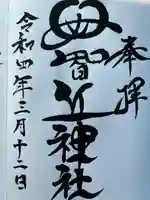 奉拝
智近神社
令和四年三月十二日